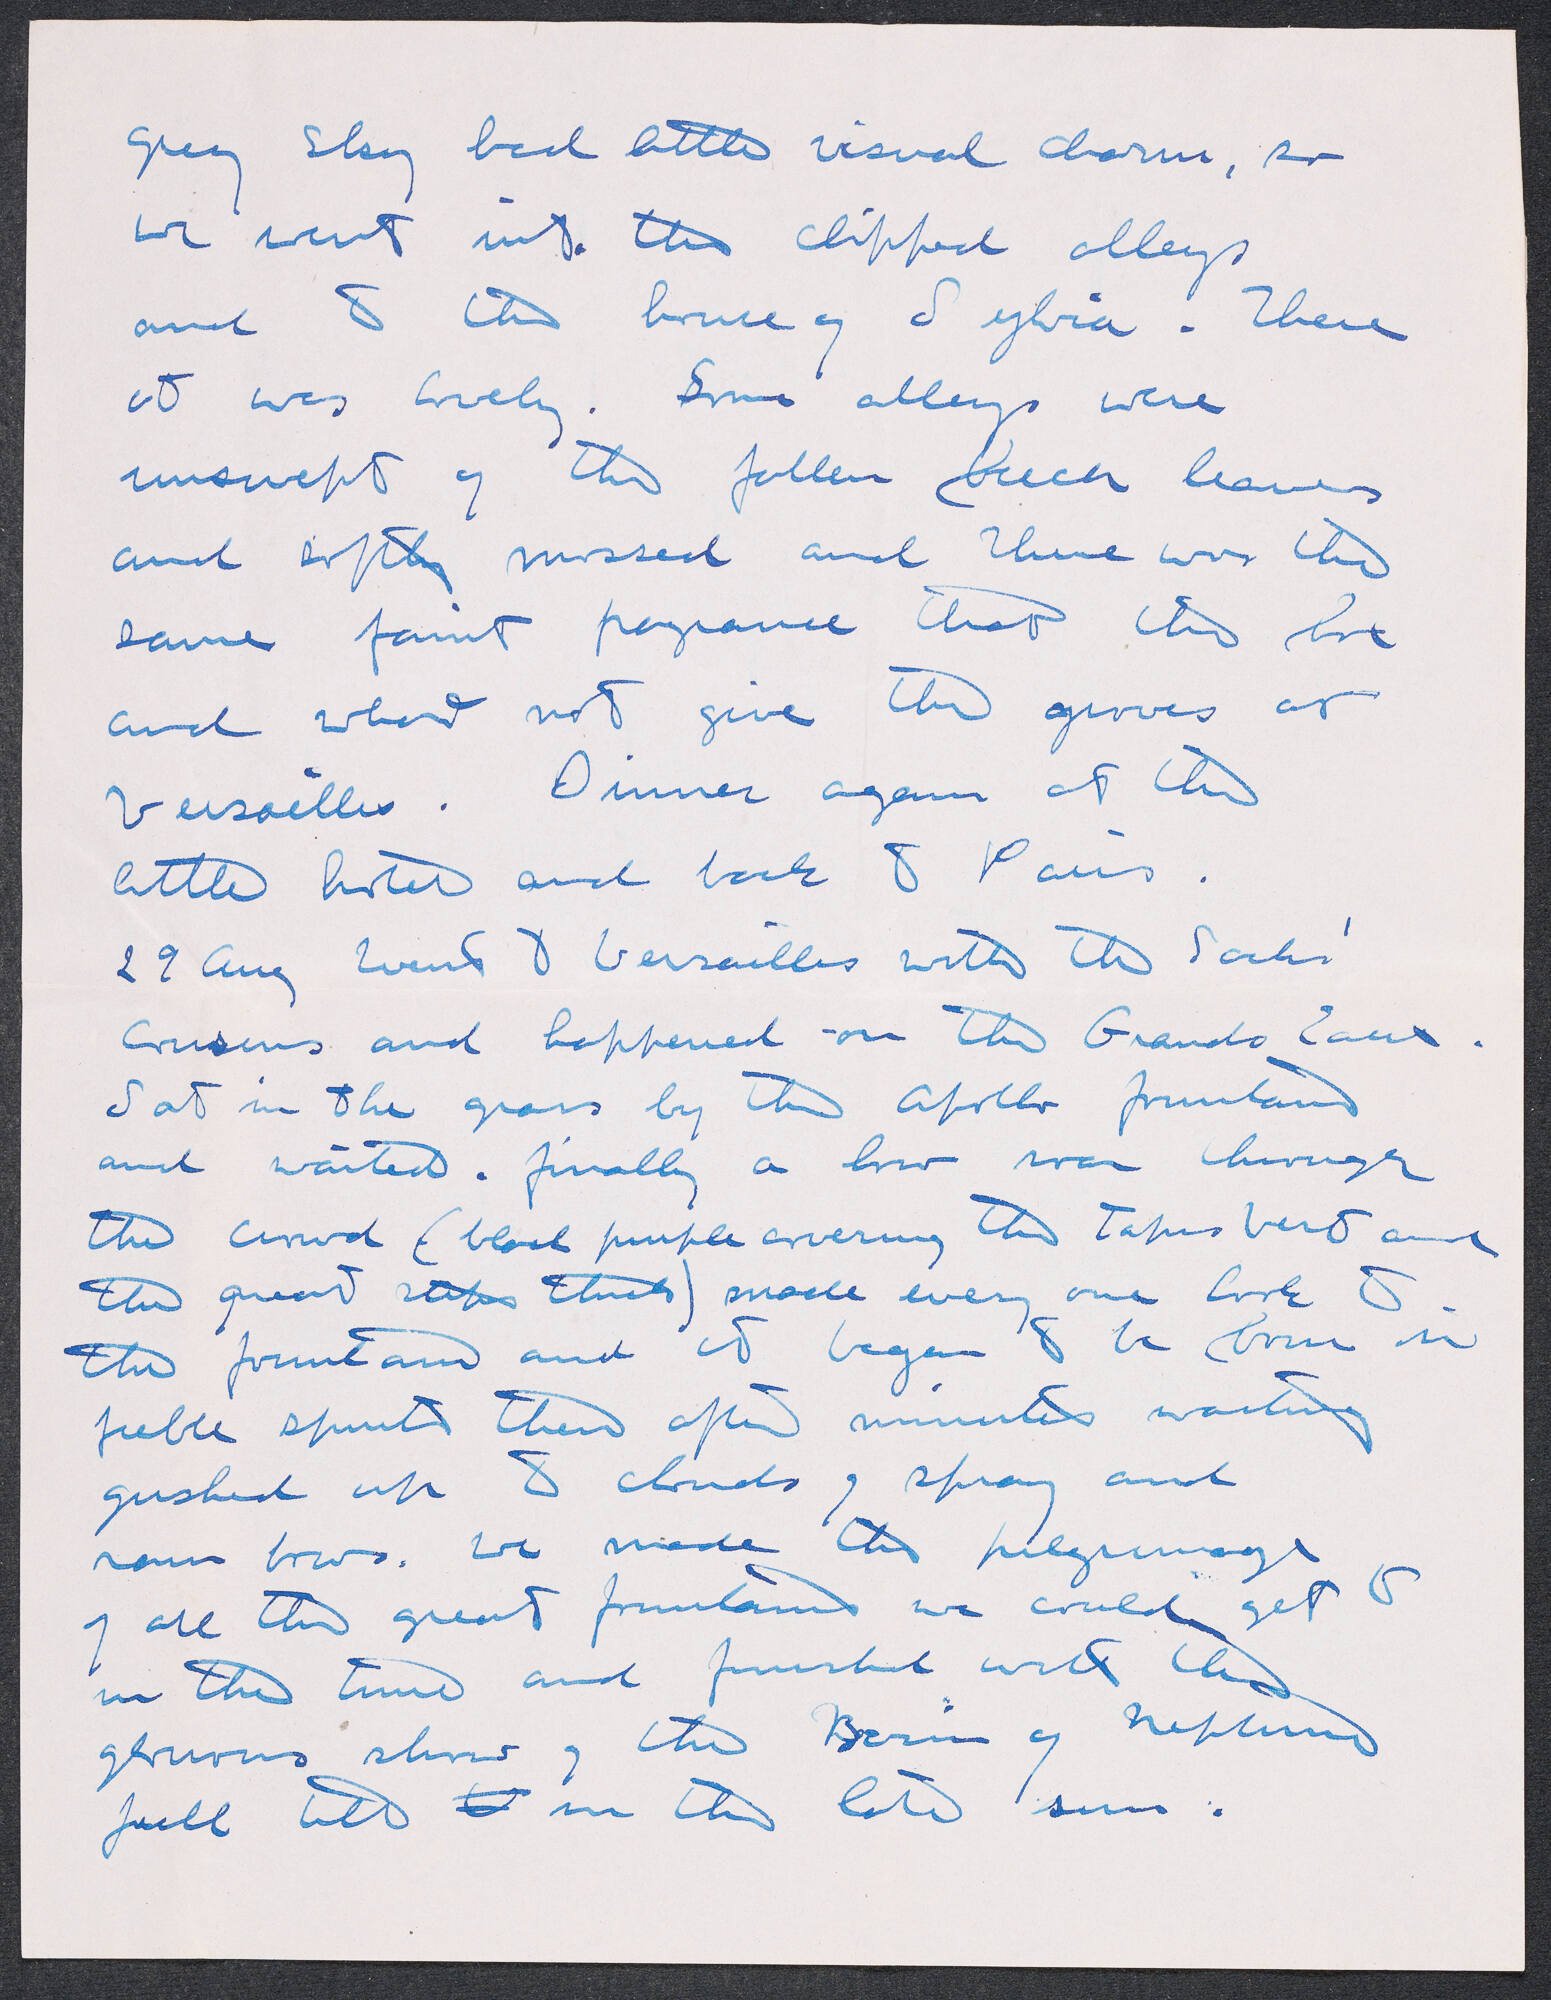 grey sky had little visual charm, so
we went into the clipped alleys
and to the house of Sylvia. There
it was lovely. Some alleys were
unswept of the fallen beech leaves
and softly mossed and there was the
same faint fragrance that the box
and what not give the groves at
Versailles. Dinner again at the
little hotel and back to Paris.
29 Aug Went to Versailles with the Sachs'
cousins and happened on the Grands Eaux.
Sat in the grass by the Apollo fountain
and waited. finally a low roar through
the crowd (black people covering the Tapis Vert and
the great steps thick) made every one look to
the fountain and it began to be born in
feeble spurts then after minutes waiting
gushed up to clouds of spray and
rain bows. We made the pilgrimage
of all the great fountains we could get to
in the time and finished with the
glorious show of the Basin of Neptune
full tilt in the late sun.